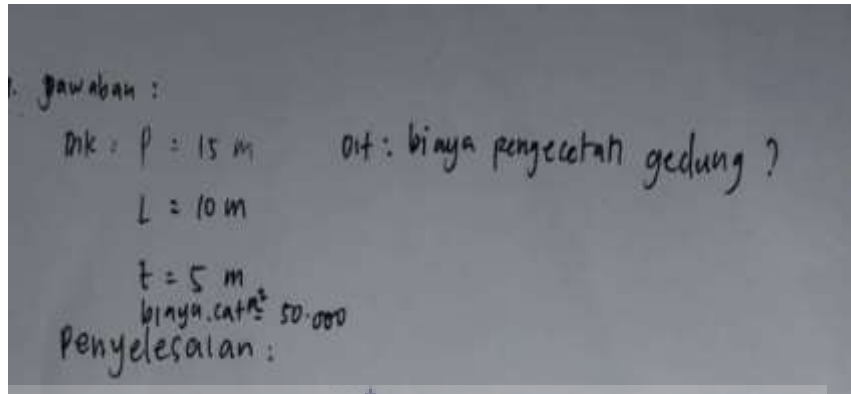 1. Jawaban :
Dik : P = 15 m Dit : biaya pengecetan gedung ?
L = 10 m
t = 5 m
biaya.cat m² = 50.000
Penyelesaian :